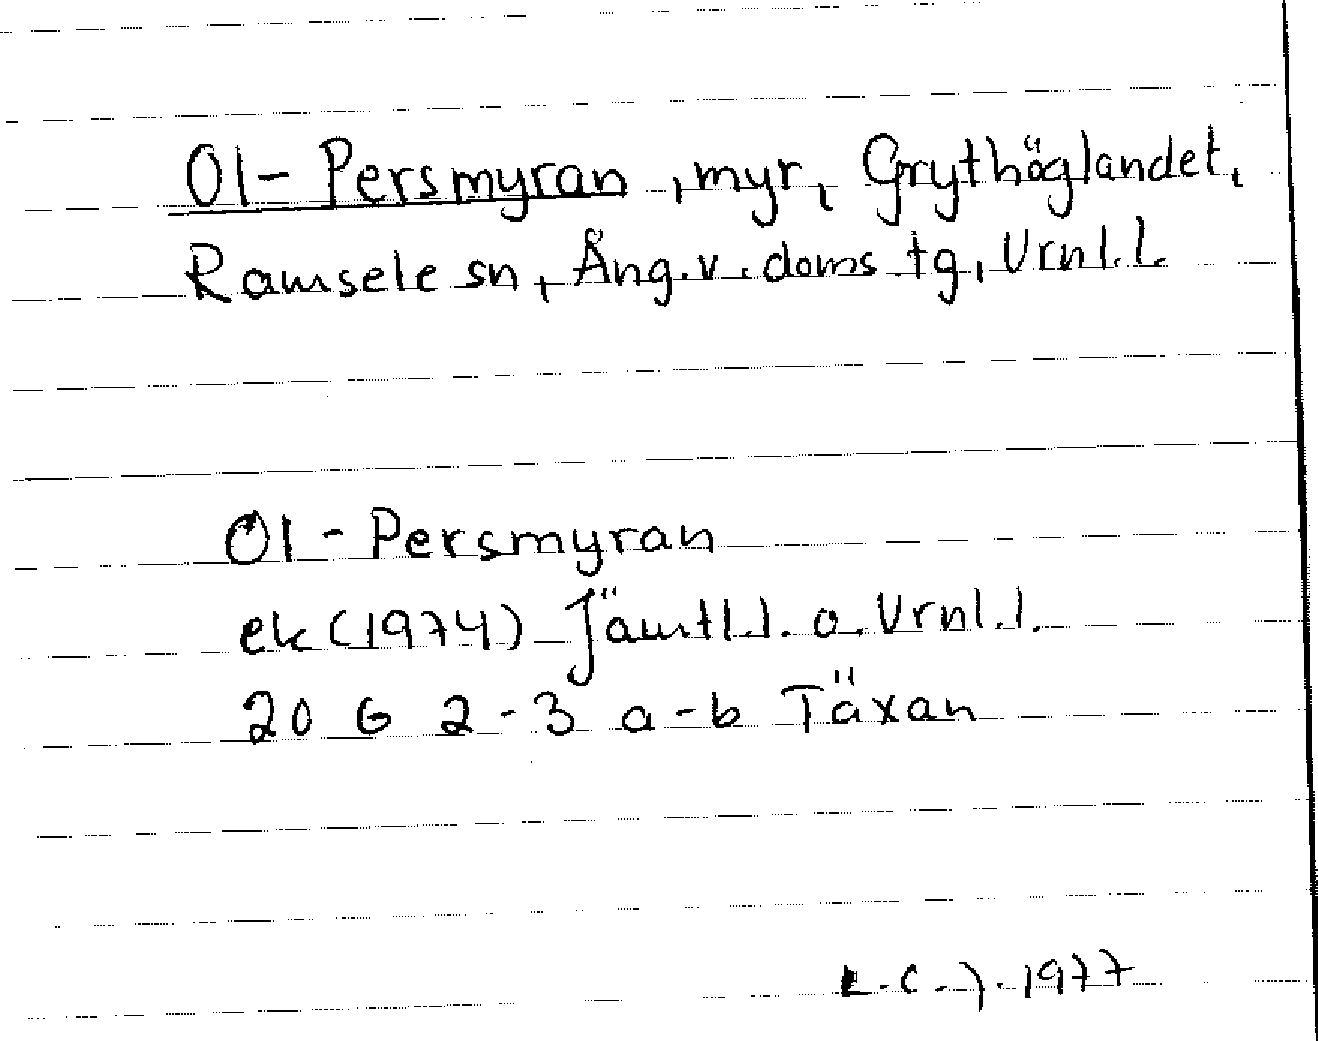 Ol-Persmyran, myr, Grythöglandet,
Ramsele sn, Ång.v.doms.tg, Vrnl.L
Ol-Persmyran
ek (1974) Jämtl.l. o. Vrnl.l.
20 G 2-3 a-b Täxan
L.C.J. 1977